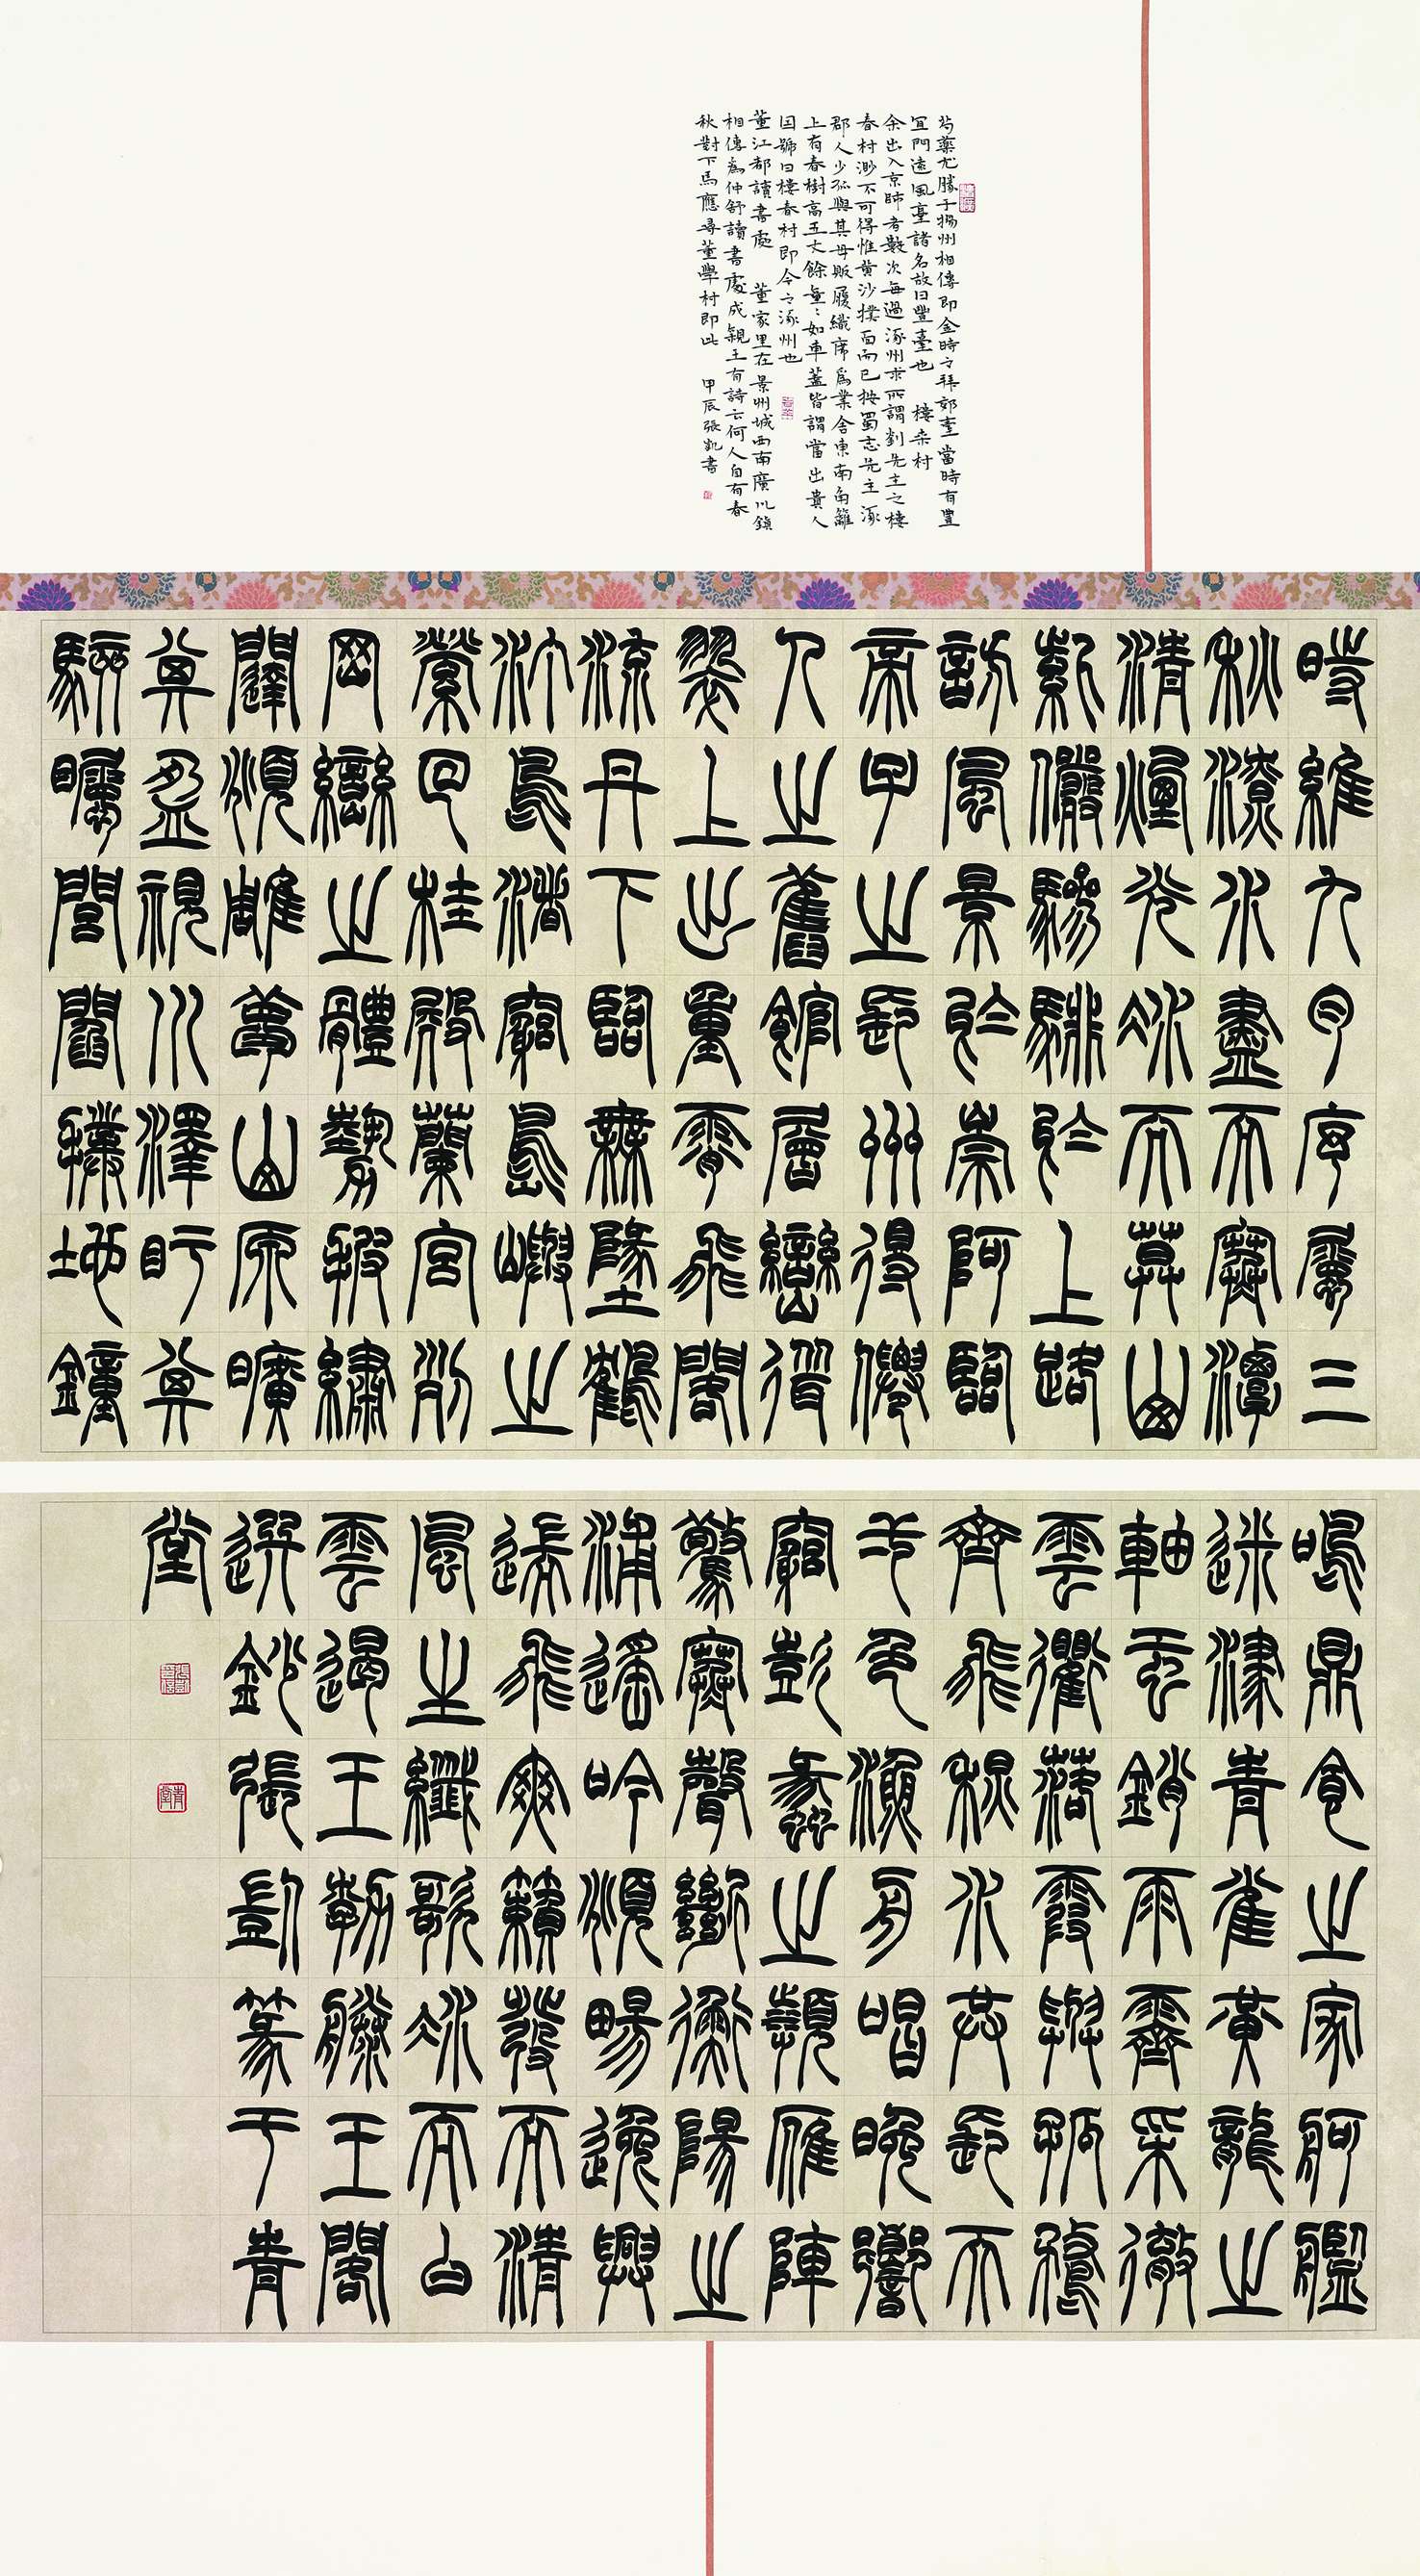 芍藥尤勝于揚州相傳即金時之拜郊臺當時有豐
宜門遠風臺諸名故曰豐臺也 樓桑村
余出入京師者數次每過涿州求所謂劉先主之樓
春村渺不可得惟黄沙撲面而已按蜀志先主涿
郡人少孤與其母販履織席爲業舍東南角籬
上有春樹高五丈餘童〻如車蓋皆謂當出貴人
因號曰樓春村即今之涿州也
董江都讀書處 董家里在景州城西南廣川鎮
相傳為仲舒讀書處成親王有詩云何人自有春
秋對下馬應尋董學村即此 甲辰張凱書
時維九月序屬三
秋潦水盡而寒潭
清煙光凝而暮山
紫儼驂騑於上路
訪風景於崇阿臨
帝子之長洲得僊
人之舊館層巒聳
翠上出重霄飛閣
流丹下臨無墜鶴
汀鳧渚窮島嶼之
縈回桂殿蘭宮列
岡巒之體勢披繡
闥俯雕甍山原曠
其盈視川澤盱其
駭矚閭閻撲地鐘
鳴鼎食之家舸艦
迷津青雀黃龍之
軸雲銷雨霽采徹
雲衢落霞與孤鶩
齊飛秋水共長天
一色漁舟唱晚響
窮彭蠡之濱雁陣
驚寒聲斷衡陽之
浦遙吟俯暢逸興
遄飛爽籟發而清
風生纖歌凝而白
雲遏王勃滕王閣
選鈔張凱篆于青
堂